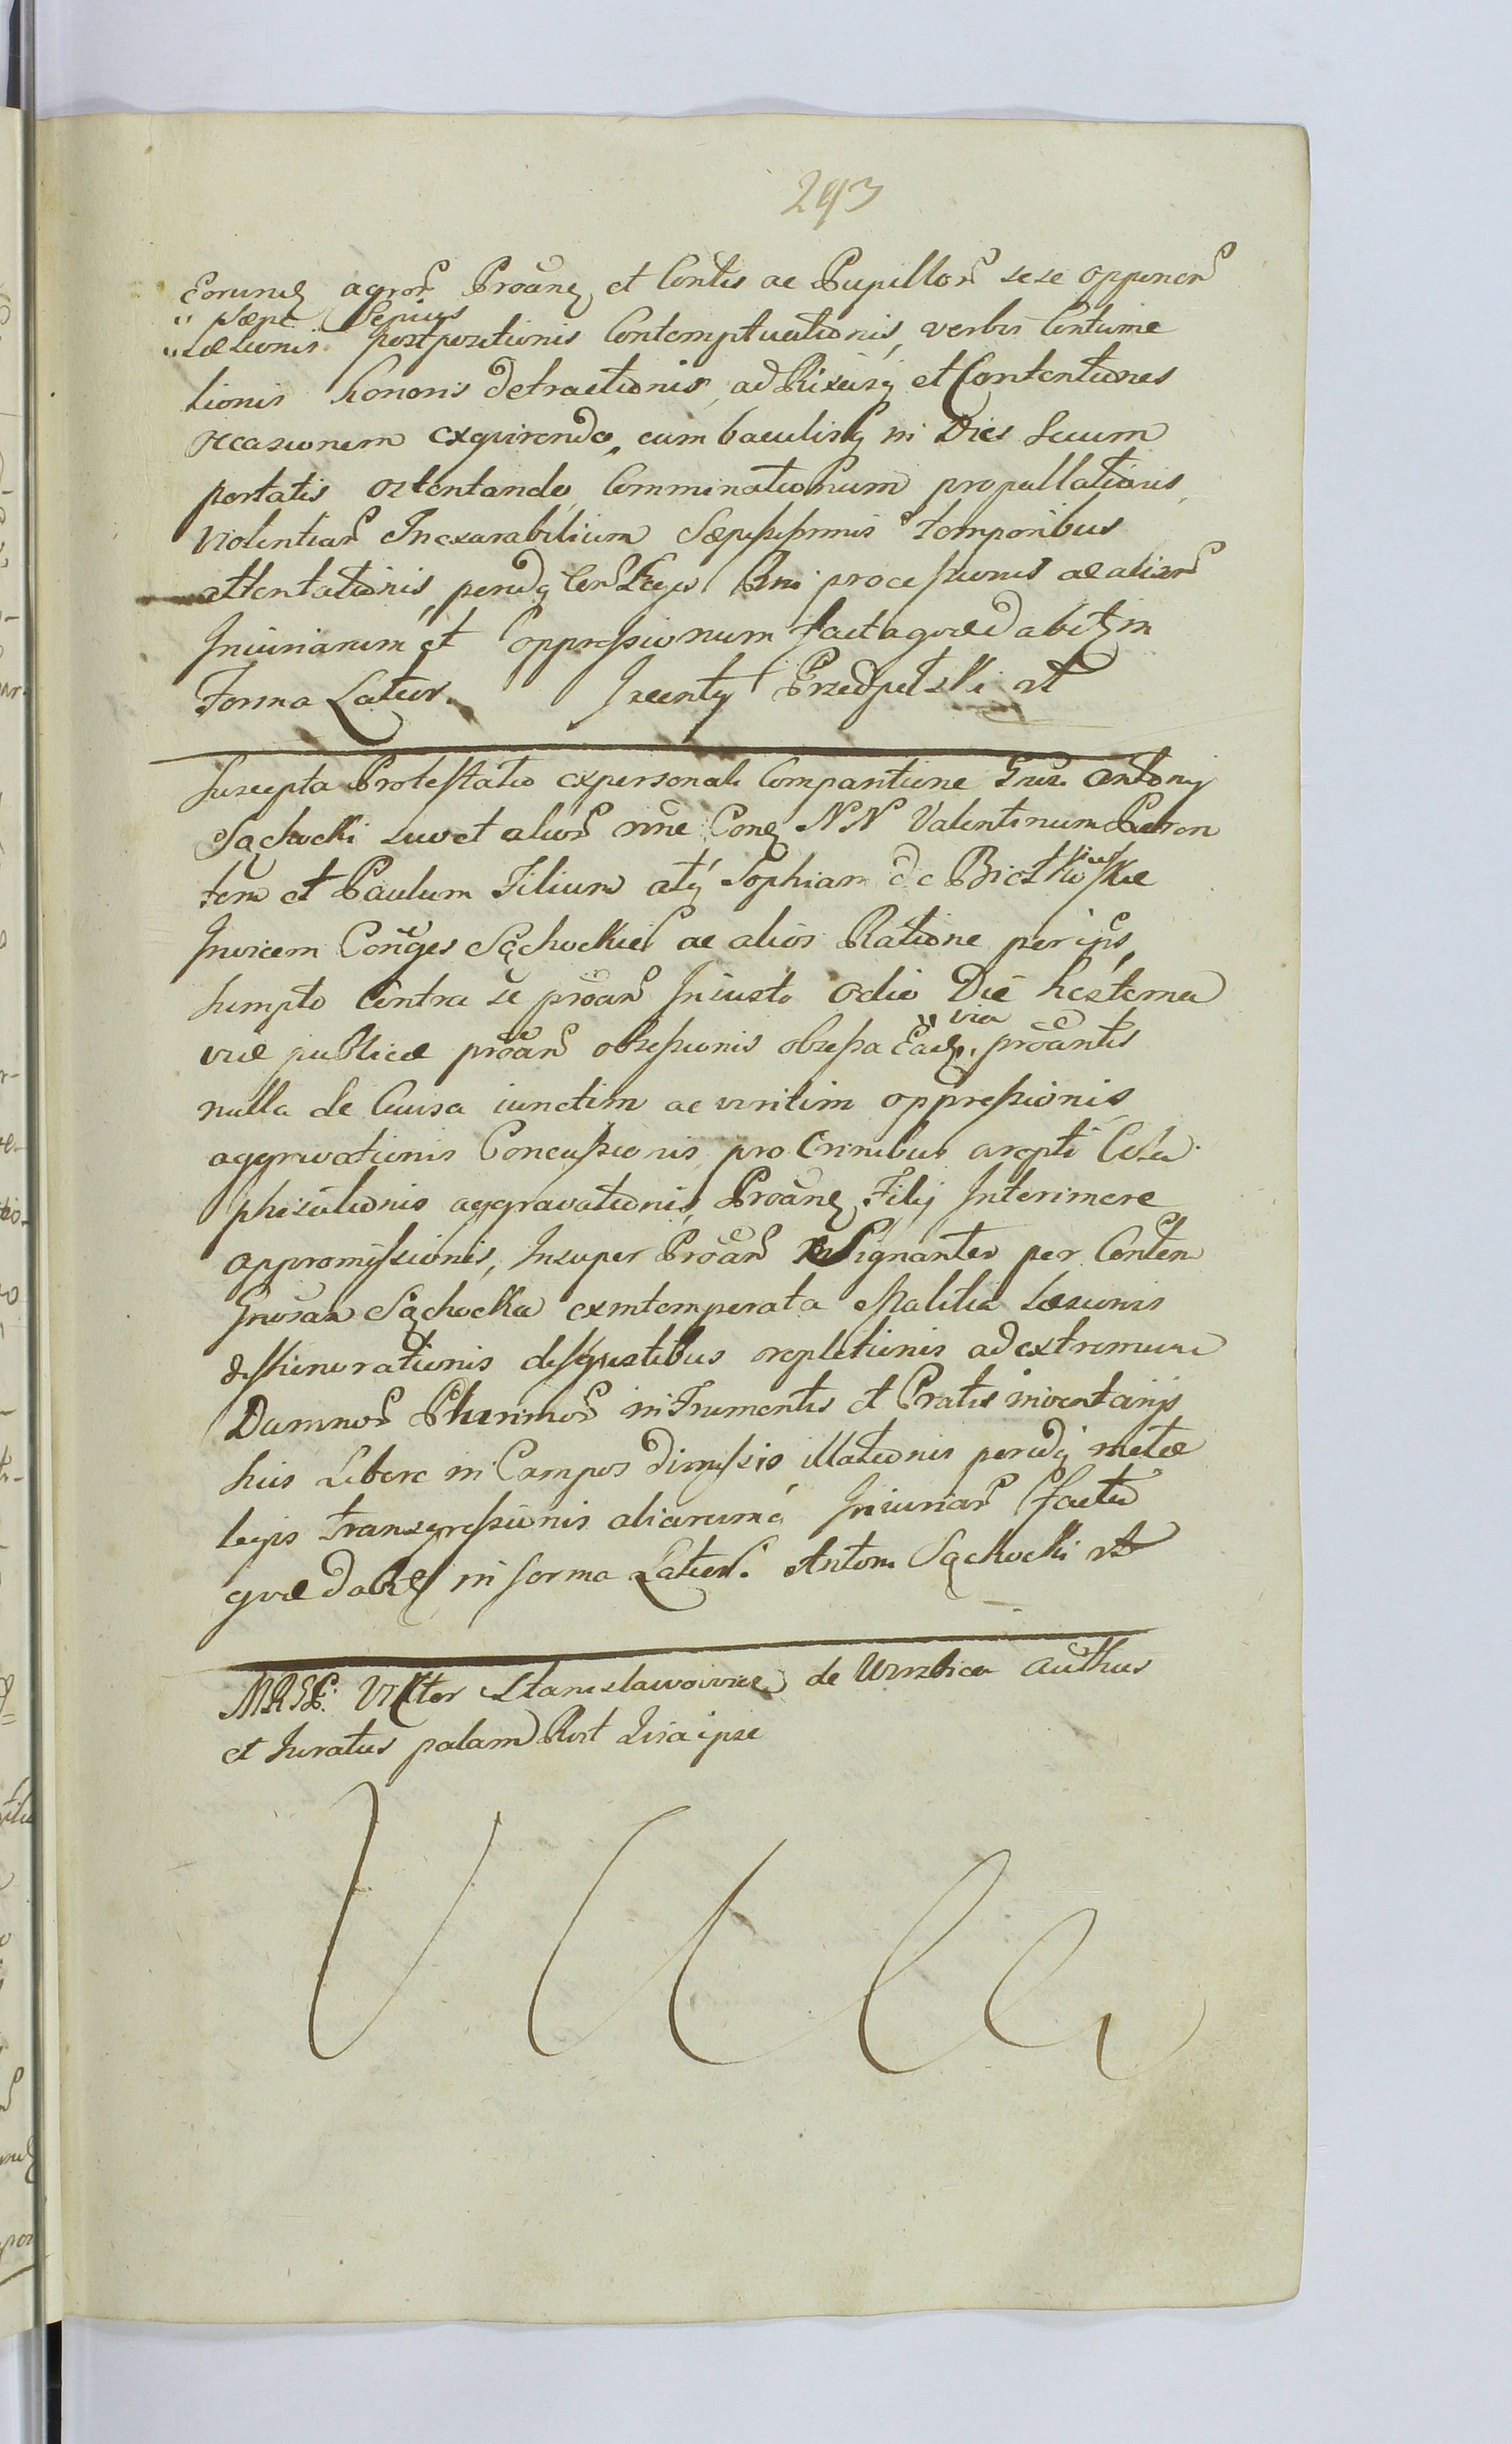 293
Eorundꝫ agror̃ Proãnꝫ et Contis ac Pupillor̃ sese opponen̄
" sæpe Sepius
" Læsionis postpositionis Contemptuationis, verbis Contume
lionis honoris detractionis, ad Rixasqꝫ et Contentiones
occasionem exquirendo, cum baculisqꝫ in Dies secum
portatis ostentando, Comminationum propullationis,
violentiar̃ Inexarabilium Sæpissimis temporibus
attentationis, processionis ac aliar̃
Iniuriarum et oppressionum facta qvæ dabitꝫ in
Forma Latior. Przedpełski mp
Suscepta Protestatio ex personali Comparitione Antonij
Sąchocki suo et alior̃ nne Conꝫ NN Valentinum Paren
tem et Paulum Filium atqꝫ Sophiam de
Invicem Conges Sąchockie ac alios Ratione per ips,
sumpto Contra se proan̄ Iniusto odio Die hesterna
via
viæ publicæ proan̄ obsessionis obsessa Eadꝫ. proãntis
nulla de Causa iunctim ac viritim oppressionis,
aggravationis Concussionis pro Crinibus arepti Cola
phisationis aggravationis, Proãnꝫ Filij Interimere
appromissionis, Insuper Proan̄ Signanter per Conten
Gnosam Sąchocka ex intemperata Malitia Læsionis
dishonorationis disgustibus repletionis ad extremum
Damnor̃ Plurimor̃ in Frumentis et Pratis inventarijs
suis Libere in Campos dimissis illationis metæ
legis transgressionis aliarumqꝫ Iniuriar̃ facta
qvæ dabitꝫ in forma Latiori. Antoni Sąchocki mp
MRSE: Victor Stanisławowicz de Wierzbica authus
et Iuratus palam Rort